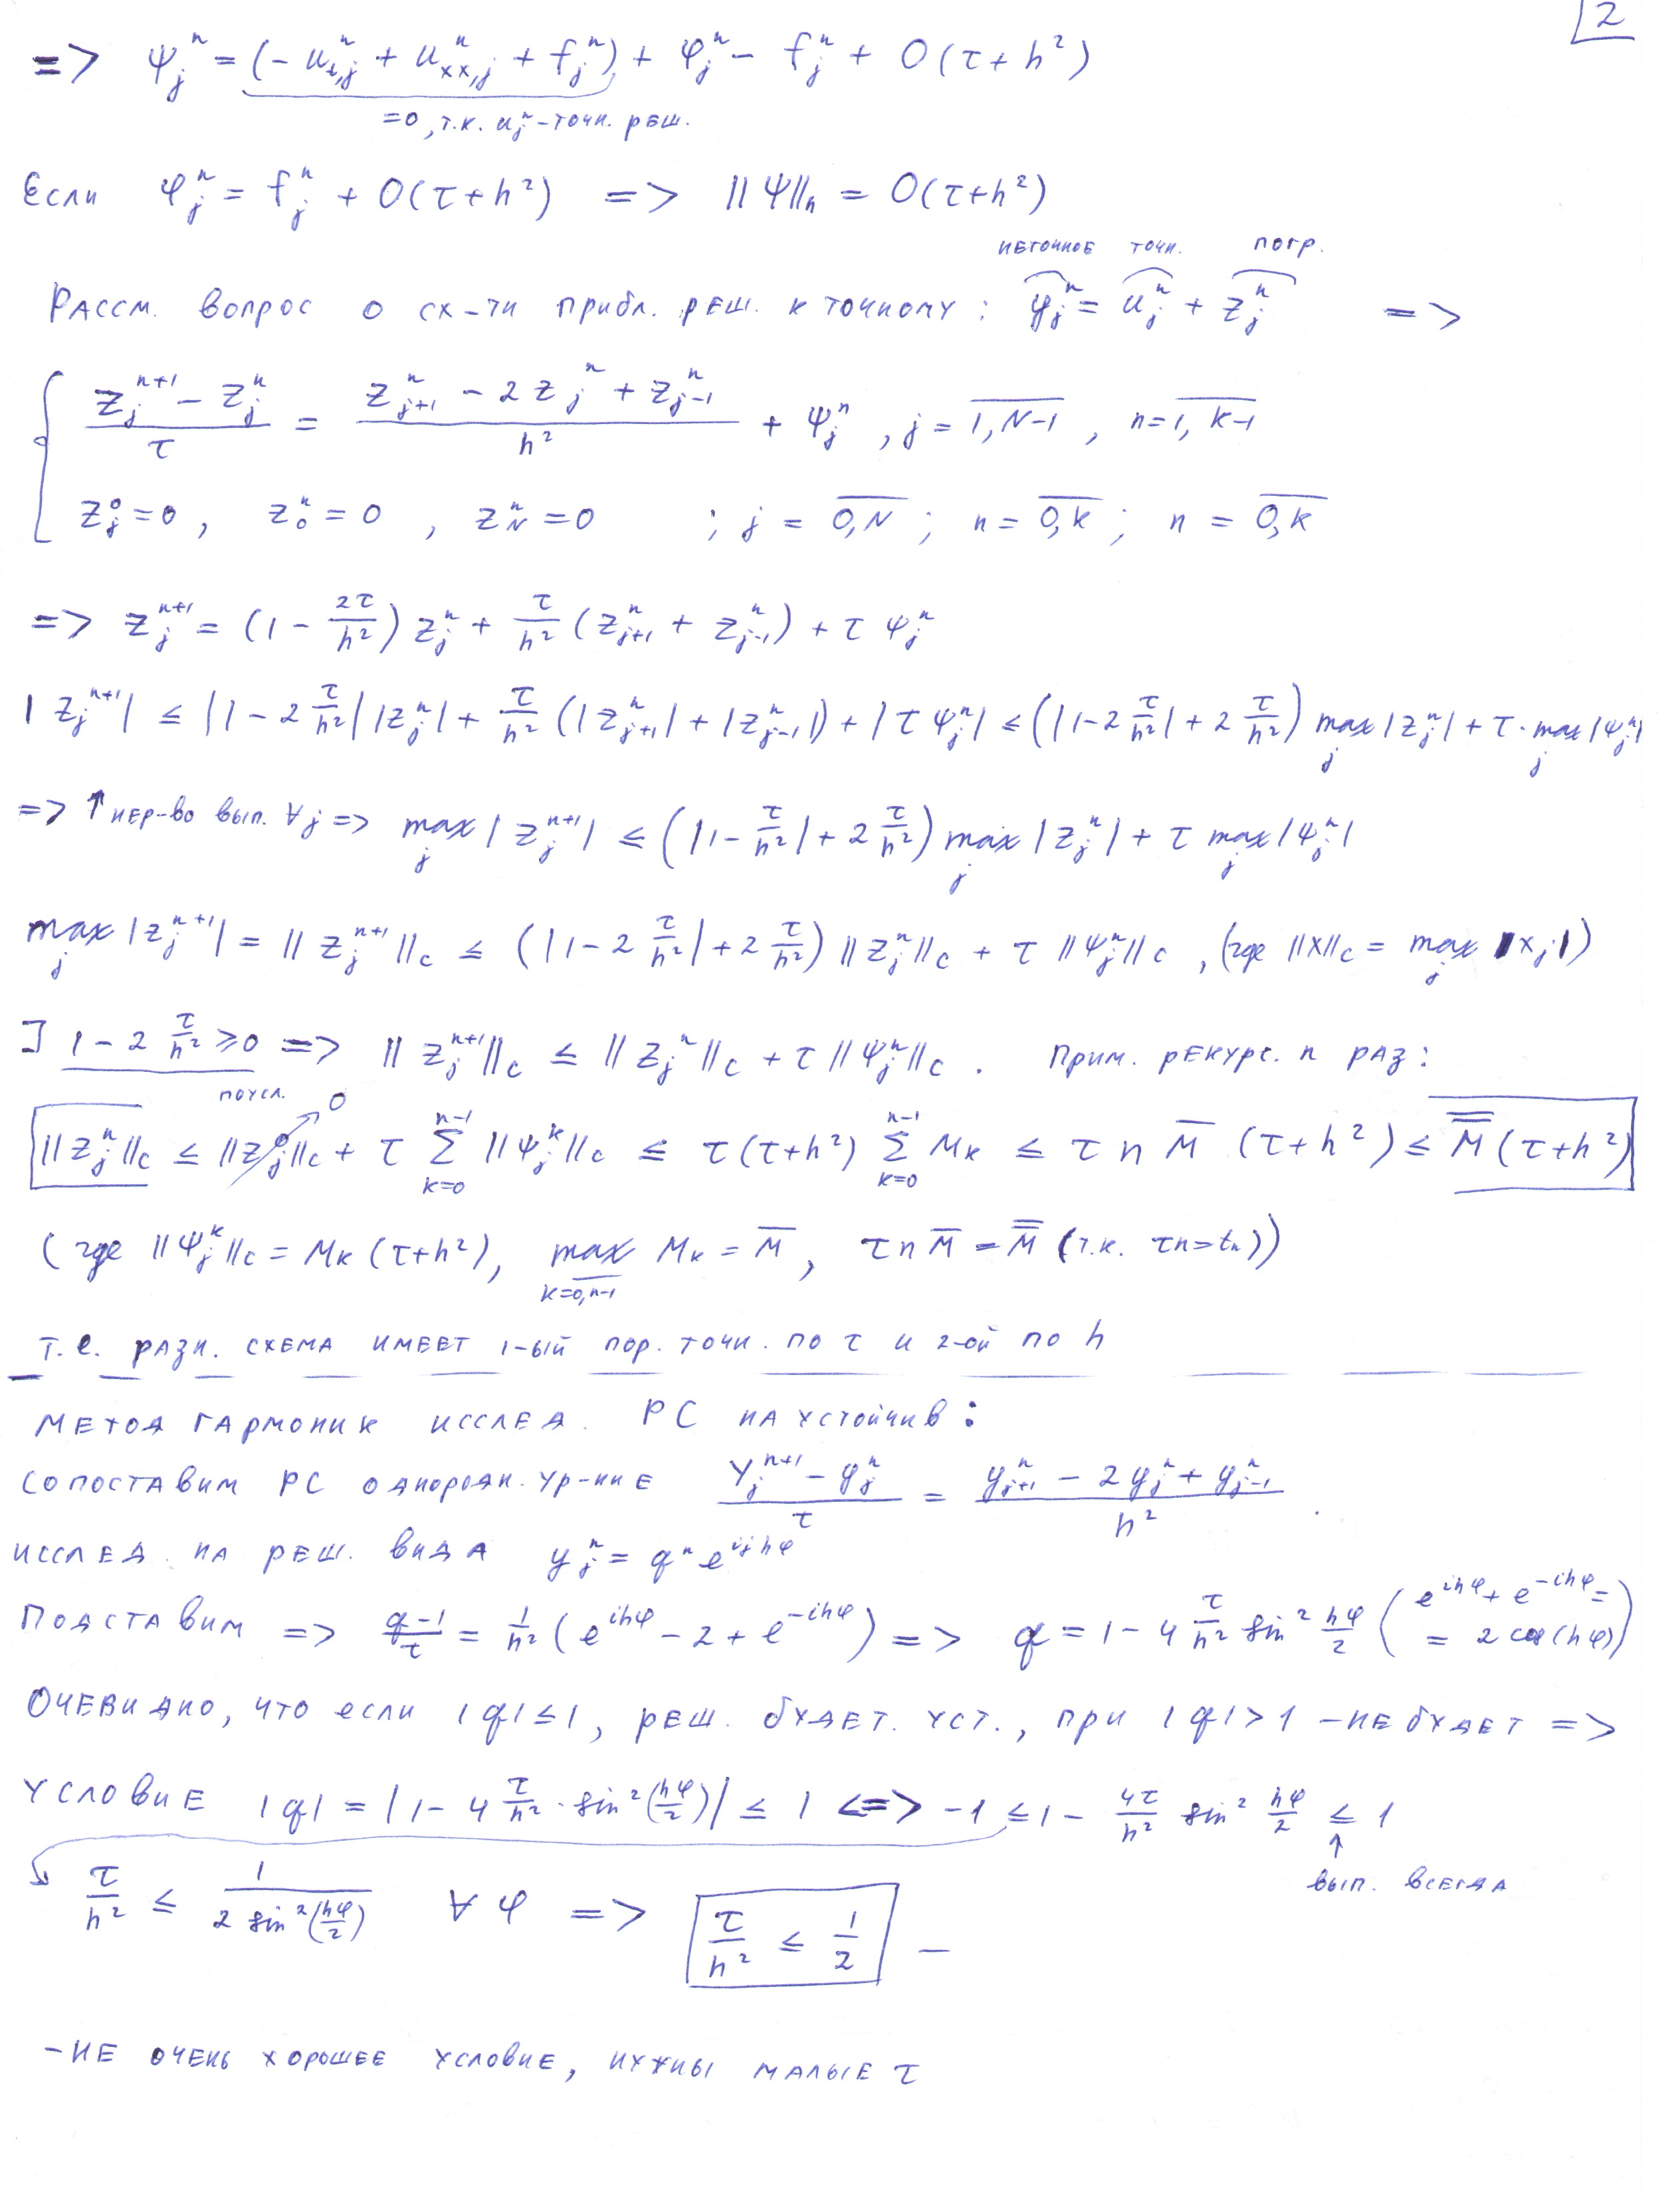 2
=> ψ_j^n = (- u_{t,j}^n + u_{xx,j}^n + f_j^n) + φ_j^n - f_j^n + O(τ+h²)
=0, т.к. u_j^n - точн. реш.
Если φ_j^n = f_j^n + O(τ+h²) => ||ψ||_h = O(τ+h²)
неточное точн. погр.
Рассм. вопрос о сх-ти прибл. реш. к точному: y_j^n = u_j^n + z_j^n =>
{ (z_j^{n+1} - z_j^n)/τ = (z_{j+1}^n - 2z_j^n + z_{j-1}^n)/h² + ψ_j^n, j = \overline{1,N-1}, n = \overline{1,K-1}
z_j^0 = 0, z_0^n = 0, z_N^n = 0 ; j = \overline{0,N} ; n = \overline{0,K} ; n = \overline{0,K}
=> z_j^{n+1} = (1 - 2τ/h²) z_j^n + τ/h² (z_{j+1}^n + z_{j-1}^n) + τ ψ_j^n
|z_j^{n+1}| ≤ |1 - 2 τ/h²| |z_j^n| + τ/h² (|z_{j+1}^n| + |z_{j-1}^n|) + |τ ψ_j^n| ≤ (|1 - 2 τ/h²| + 2 τ/h²) max_j |z_j^n| + τ · max_j |ψ_j^n|
=> ↑ нер-во вып. ∀j => max_j |z_j^{n+1}| ≤ (|1 - τ/h²| + 2 τ/h²) max_j |z_j^n| + τ max_j |ψ_j^n|
max_j |z_j^{n+1}| = ||z_j^{n+1}||_C ≤ (|1 - 2 τ/h²| + 2 τ/h²) ||z_j^n||_C + τ ||ψ_j^n||_C, (где ||x||_C = max_j |x_j|)
] 1 - 2 τ/h² ≥ 0 => ||z_j^{n+1}||_C ≤ ||z_j^n||_C + τ ||ψ_j^n||_C. Прим. рекурс. n раз:
0
||z_j^n||_C ≤ ||z_j^0||_C + τ Σ_{k=0}^{n-1} ||ψ_j^k||_C ≤ τ(τ+h²) Σ_{k=0}^{n-1} M_k ≤ τ n \overline{M} (τ+h²) ≤ \overline{\overline{M}} (τ+h²)
(где ||ψ_j^k||_C = M_k (τ+h²), max_{k=\overline{0,n-1}} M_k = \overline{M}, τ n \overline{M} = \overline{\overline{M}} (т.к. τn = t_n))
т.е. разн. схема имеет 1-ый пор. точн. по τ и 2-ой по h
Метод гармоник исслед. РС на устойчив:
Сопоставим РС однородн. ур-ние (y_j^{n+1} - y_j^n)/τ = (y_{j+1}^n - 2y_j^n + y_{j-1}^n)/h².
Исслед. на реш. вида y_j^n = q^n e^{ijhφ}
Подставим => (q-1)/τ = 1/h² (e^{ihφ} - 2 + e^{-ihφ}) => q = 1 - 4 τ/h² sin² hφ/2 (e^{ihφ} + e^{-ihφ} =
= 2 cos(hφ))
Очевидно, что если |q| ≤ 1, реш. будет. уст., при |q| > 1 - не будет =>
Условие |q| = |1 - 4 τ/h² · sin² (hφ/2)| ≤ 1 <=> -1 ≤ 1 - 4τ/h² sin² hφ/2 ≤ 1
↑ вып. всегда
τ/h² ≤ 1/(2 sin² (hφ/2)) ∀ φ => τ/h² ≤ 1/2 —
- не очень хорошее условие, нужны малые τ